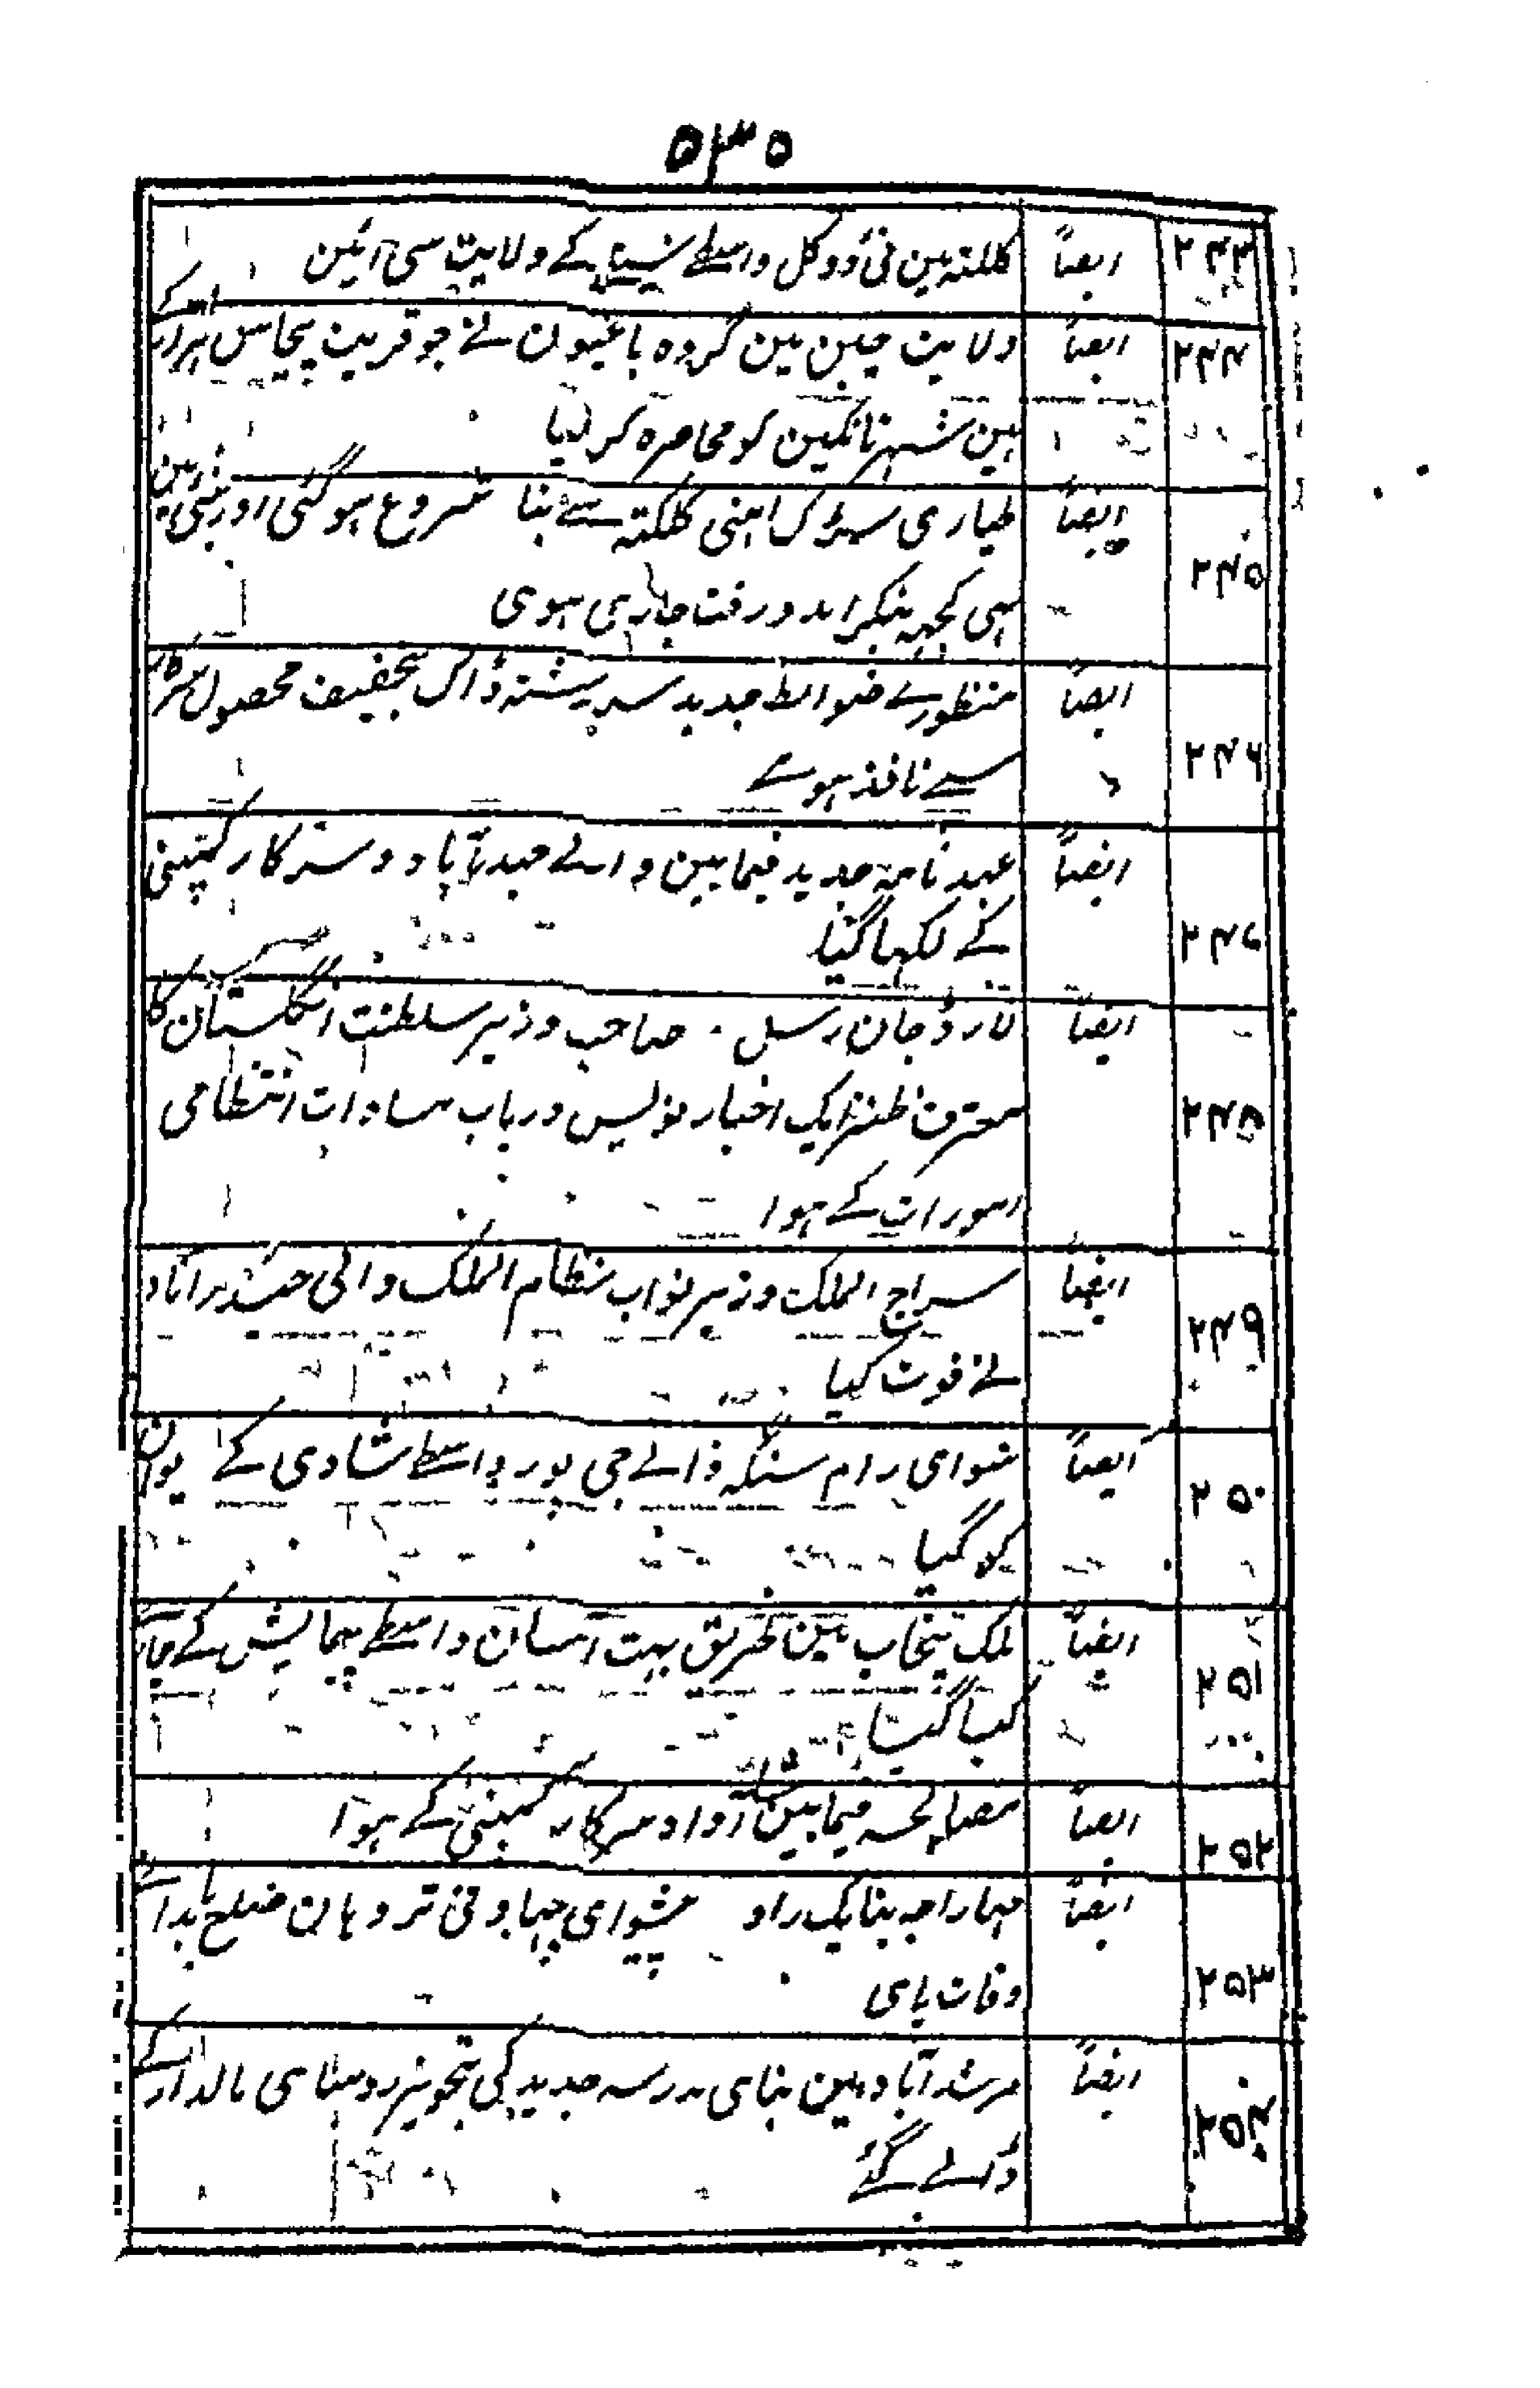 ۵۳۵
۲۴۳ ایضاً کلکتہ مین نئ دو کل واسطے کے ولایت سی آئین
۲۴۴ ایضاً ولایت چین مین گروہ باغیون نے جو قریب پچاس ہزار کے
ہین شہر نانکین کو محاصرہ کر لیا
۲۴۵ ایضاً طیاری سڑک اہنی کلکتہ سے بننا شروع ہو گئی اور
ہی کچہہ بنکر امد و رفت جاری ہوی
۲۴۶ ایضاً منظورے ضوابط جدید سررشتہ ڈاک بتخفیف محصول
سے نافذ ہوے
۲۴۷ ایضاً عہد نامہ جدید فیما بین والے حیدرآباد و سرکار کمپنی
کے لکھا گیا
۲۴۸ ایضاً لارڈ جان رسل صاحب وزیر سلطنت انگلستان کا
معترف ایک اخبار نویس درباب مساوات انتظامی
امورات کے ہوا
۲۴۹ ایضاً سراج الملک وزیر نواب نظام الملک والی حیدرآباد
نے فوت کیا
۲۵۰ ایضاً سوای رام سنگہ والے جی پور واسطے شادی کے
کو گیا
۲۵۱ ایضاً ملک پنجاب مین طریق بہت آسان واسطے پیمایش کے
کیا گیا
۲۵۲ ایضاً مصالحہ فیمابین شاہ آوا و سرکار کمپنی کے ہوا
۲۵۳ ایضاً مہاراجہ بنایک راو پیشوای چہاونی ضلع
وفات پای
۲۵۴ ایضاً مرشد آباد مین بنای مدرسہ جدید کی تجویز روسای مالدار کے
ڈالے گئے